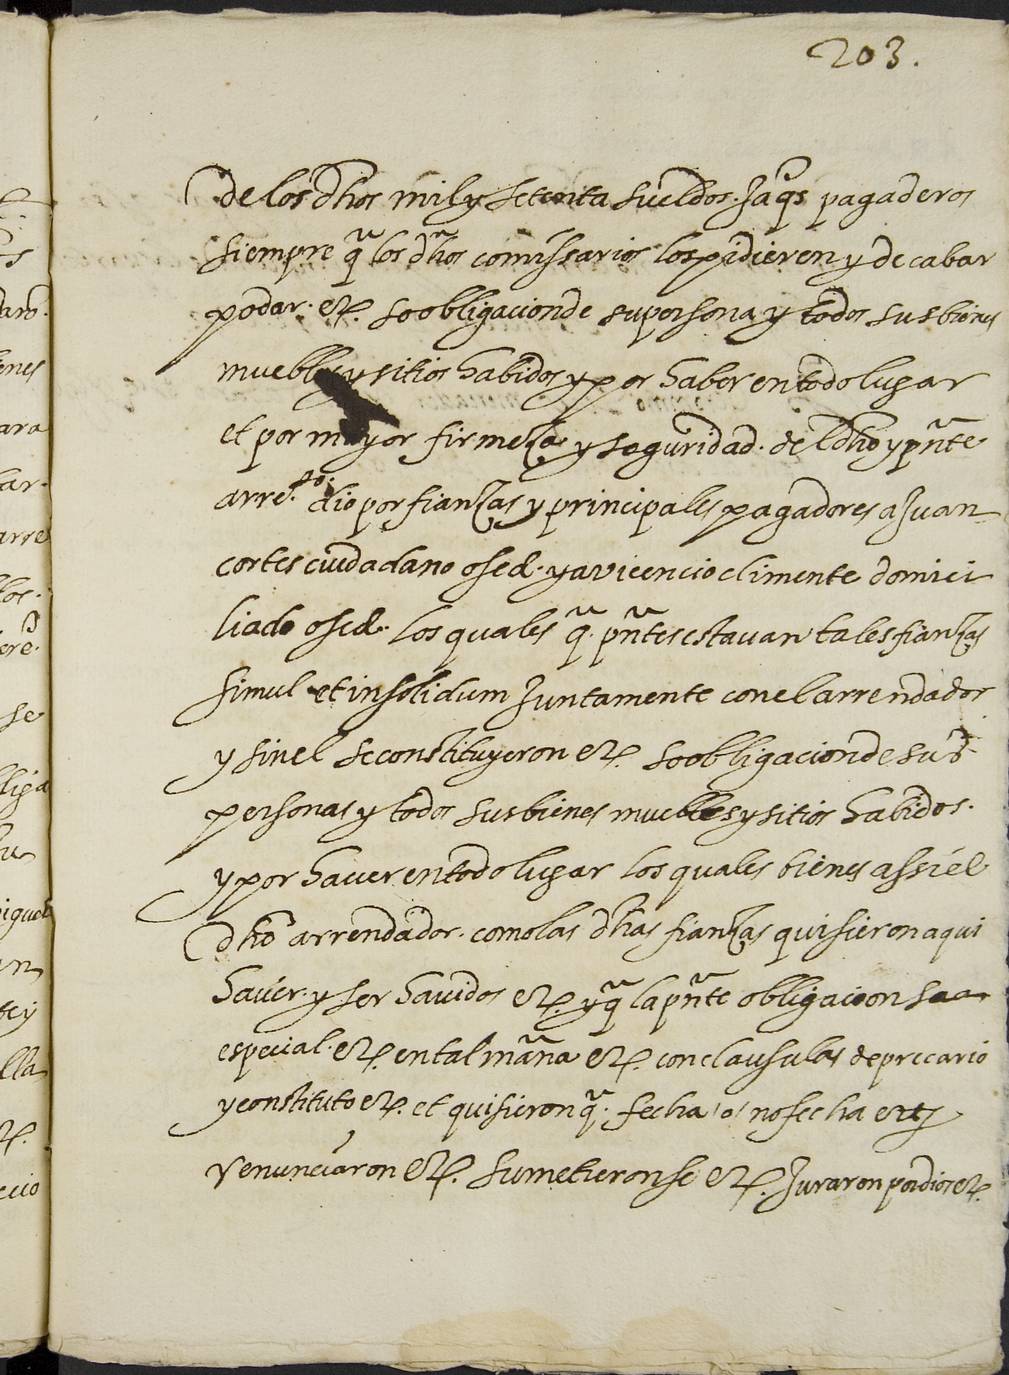 203.
de los dhos mil y setenta sueldos Jaqs pagaderos
siempre q los dhos comissarios los pidieren y de cabar
podar. &. so obligacion de su persona y todos sus bienes
muebles y sitios habidos y por haber en todo lugar
et por mayor firmeza y seguridad. del dho y pnte
arre.to dio por fianzas y principales pagadores a Juan
cortes ciudadano osce. y a vicencio climente domici
liado osce. los quales q. pntes estavan tales fianzas
simul et insolidum Juntamente con el arrendador
y sin el se constituyeron &. so obligacion de sus
personas y todos sus bienes muebles y sitios habidos.
y por haver en todo lugar los quales bienes assi el
dho arrendador. como las dhas fianzas quisieron aqui
haver. y ser havidos &. y q la pnte obligacion sea
especial. &. en tal mana &. con clausulas de precario
y constituto &. et quisieron q. fecha o no fecha
renunciaron &. sumetieronse &. Juraron por dios &.